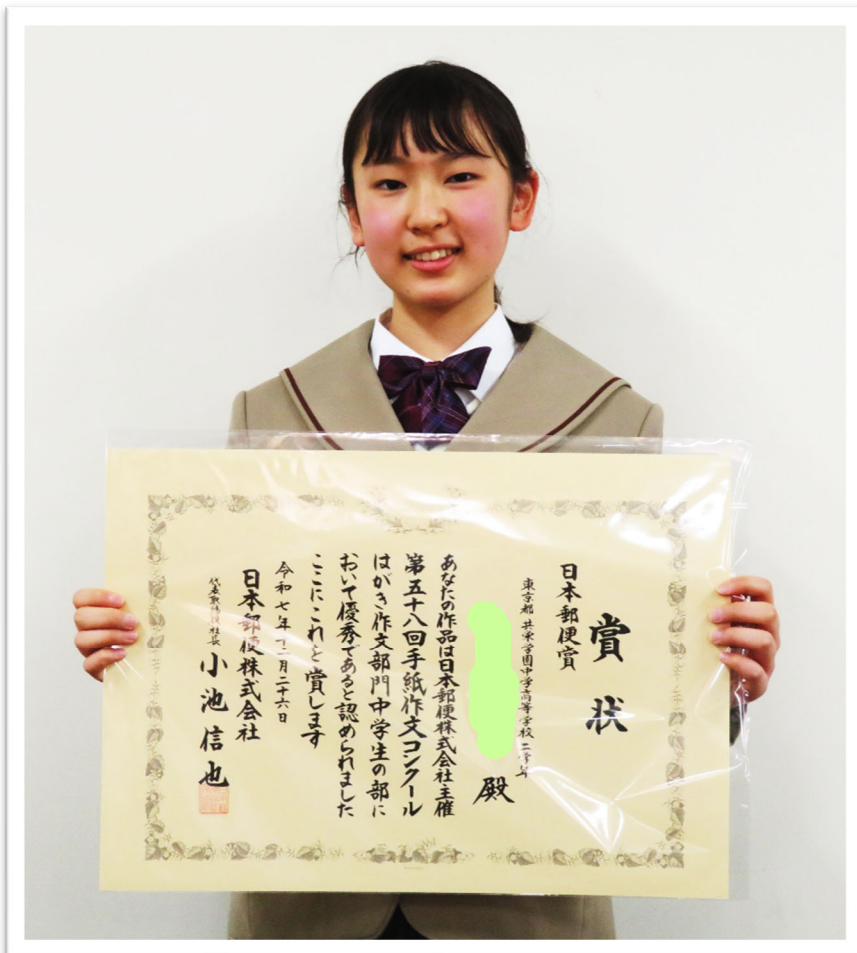 賞状
日本郵便賞
東京都 共栄学園中学高等学校 二学年
殿
あなたの作品は日本郵便株式会社主催
第五十八回手紙作文コンクール
はがき作文部門中学生の部に
おいて優秀であると認められました
ここにこれを賞します
令和七年十二月二十六日
日本郵便株式会社
代表取締役社長 小池信也